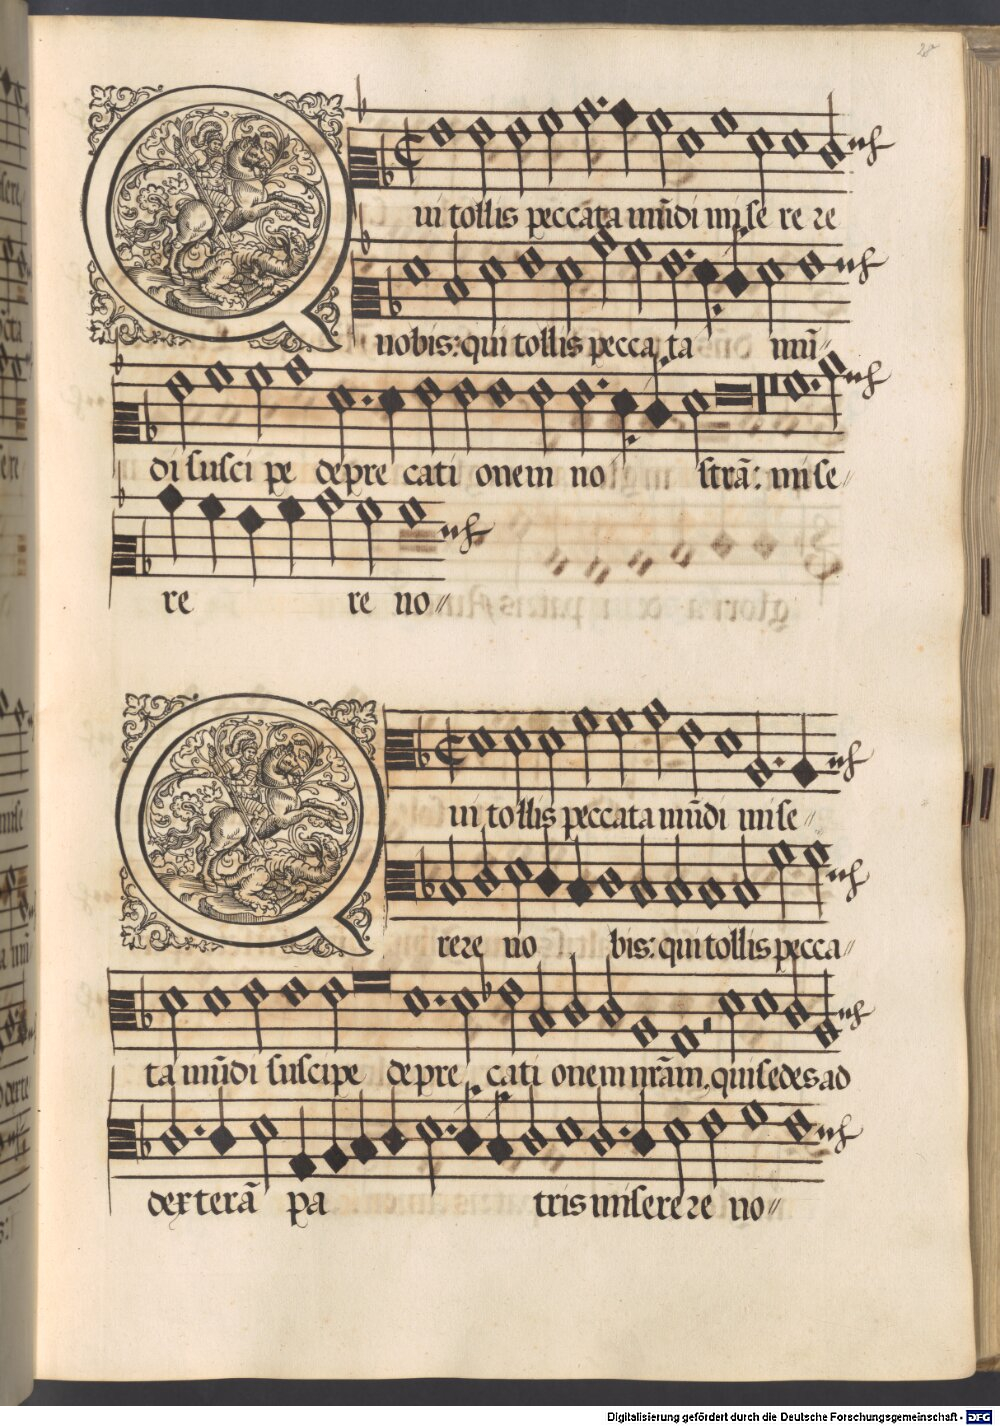 28
Qui tollis peccata mūdi mise re re
nobis: qui tollis pecca ta mū
di susci pe depre cati onem no strā: mise
re re no
Qui tollis peccata mūdi mise
rere no bis: qui tollis pecca
ta mūdi suscipe depre cati onem nrām, qui sedes ad
dexterā pa tris miserere no
Digitalisierung gefördert durch die Deutsche Forschungsgemeinschaft - DFG